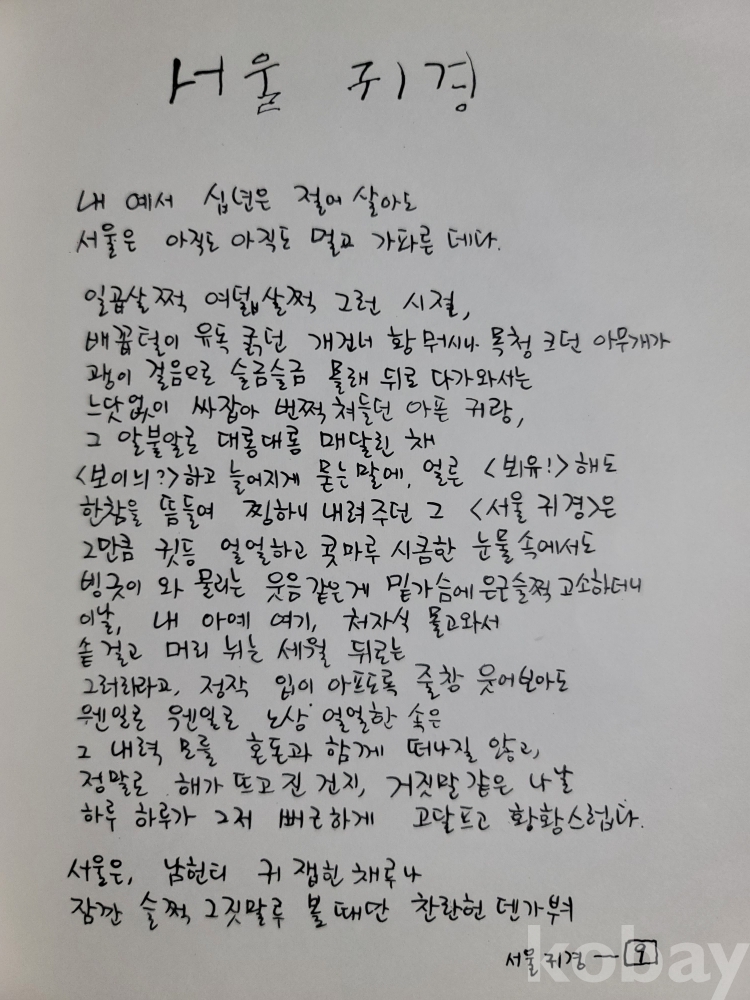 서울 귀경
내 예서 십년은 절어 살아도
서울은 아직도 아직도 멀고 가파른 데다.
일곱살쩍 여덟살쩍 그런 시절,
배꼽털이 유독 굵던 개건너 황 머시나 목청 크던 아무개가
괭이 걸음으로 슬금슬금 몰래 뒤로 다가와서는
느닷없이 싸잡아 번쩍 쳐들던 아픈 귀랑,
그 알불알로 대롱대롱 매달린 채
<보이늬?>하고 늘어지게 묻는 말에, 얼른 <뵈유!> 해도
한참을 뜸들여 찡하니 내려주던 그 <서울 귀경>은
그만큼 귓등 얼얼하고 콧마루 시큼한 눈물 속에서도
빙긋이 와 물리는 웃음같은게 밑가슴에 은근슬쩍 고소하더니
이날, 내 아예 여기, 처자식 몰고와서
솥 걸고 머리 뉘는 세월 뒤로는
그러려라고, 정작 입이 아프도록 줄창 웃어보아도
웬일로 웬일로 노상 얼얼한 속은
그 내력 모를 혼돈과 함께 떠나질 않고,
정말로 해가 뜨고 진 건지, 거짓말 같은 나날
하루 하루가 그저 뻐근하게 고달프고 황황스럽다.
서울은, 남헌티 귀 잽힌 채루나
잠깐 슬쩍 그짓말루 볼 때만 찬란헌 덴가부여
서울귀경 — 9
kobay